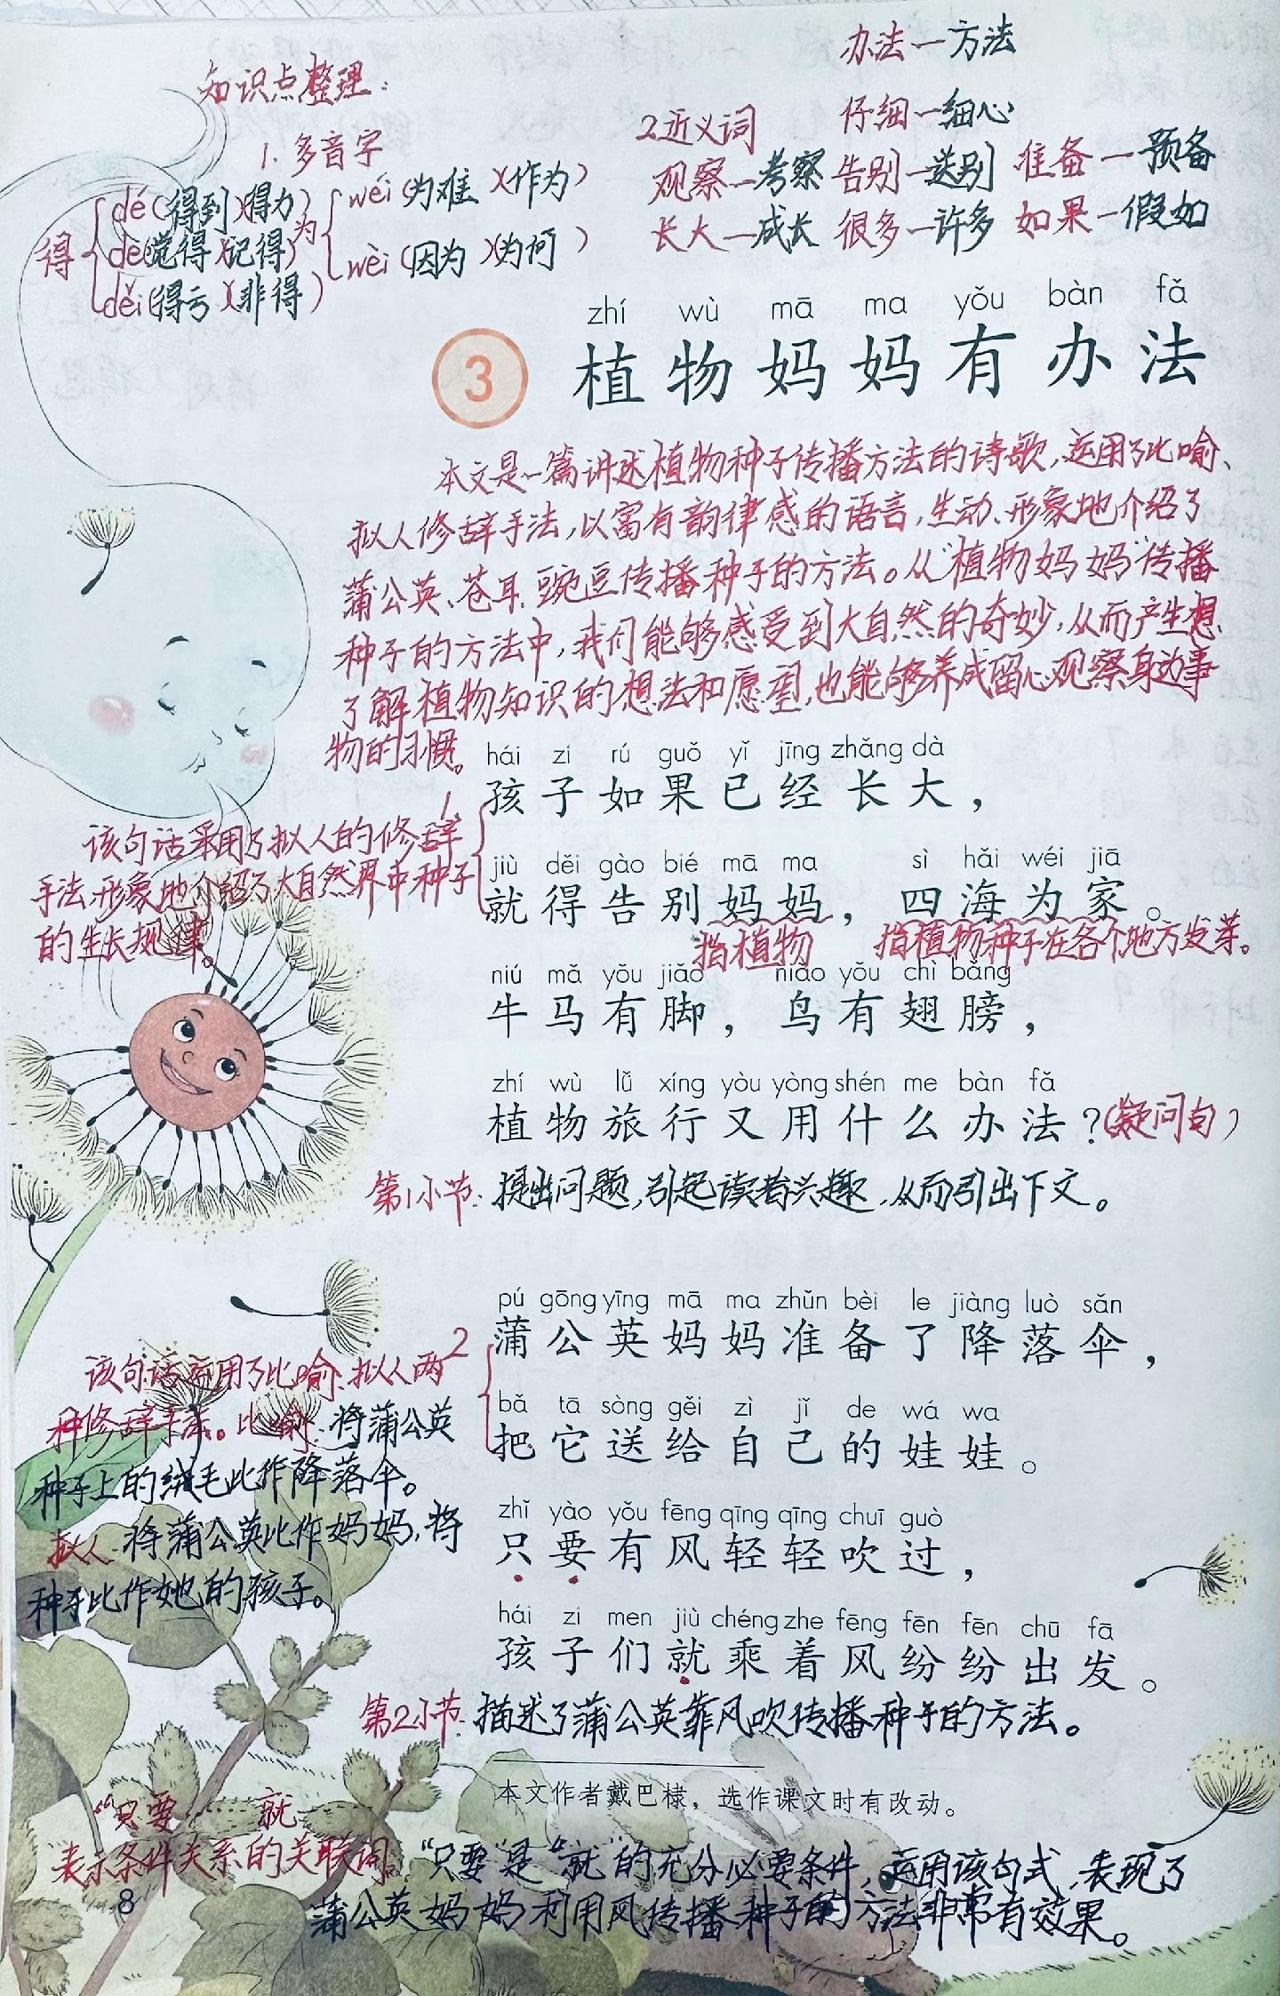 知识点整理：
1. 多音字
得 dé(得到)(得力)
dè(觉得)(记得)
děi(得亏)(非得)
为 wéi(为难)(作为)
wèi(因为)(为何)
2近义词
办法—方法
仔细—细心
观察—考察 告别—送别 准备—预备
长大—成长 很多—许多 如果—假如
zhí wù mā ma yǒu bàn fǎ
3 植物妈妈有办法
本文是一篇讲述植物种子传播方法的诗歌，运用了比喻、
拟人修辞手法，以富有韵律感的语言，生动、形象地介绍了
蒲公英、苍耳、豌豆传播种子的方法。从“植物妈妈”传播
种子的方法中，我们能够感受到大自然的奇妙，从而产生想
了解植物知识的想法和愿望，也能够养成留心观察身边事
物的习惯。
hái zi rú guǒ yǐ jīng zhǎng dà
孩子如果已经长大，
jiù děi gào bié mā ma sì hǎi wéi jiā
就得告别妈妈，四海为家。
1、该句话采用了拟人的修辞
手法,形象地介绍了大自然界中种子
的生长规律。
指植物 指植物种子在各个地方发芽。
niú mǎ yǒu jiǎo niǎo yǒu chì bǎng
牛马有脚，鸟有翅膀，
zhí wù lǚ xíng yòu yòng shén me bàn fǎ
植物旅行又用什么办法？(疑问句)
第1小节：提出问题，引起读者兴趣，从而引出下文。
pú gōng yīng mā ma zhǔn bèi le jiàng luò sǎn
蒲公英妈妈准备了降落伞，
bǎ tā sòng gěi zì jǐ de wá wa
把它送给自己的娃娃。
2 该句话运用了比喻、拟人两
种修辞手法。比喻：将蒲公英
种子上的绒毛比作降落伞。
拟人：将蒲公英比作妈妈，将
种子比作她的孩子。
zhǐ yào yǒu fēng qīng qīng chuī guò
只要有风轻轻吹过，
hái zi men jiù chéng zhe fēng fēn fēn chū fā
孩子们就乘着风纷纷出发。
第2小节：描述了蒲公英靠风吹传播种子的方法。
本文作者戴巴棣，选作课文时有改动。
“只要……就……
表示条件关系的关联词。“只要”是“就”的充分必要条件，运用该句式，表现了
蒲公英妈妈利用风传播种子的方法非常有效果。
8